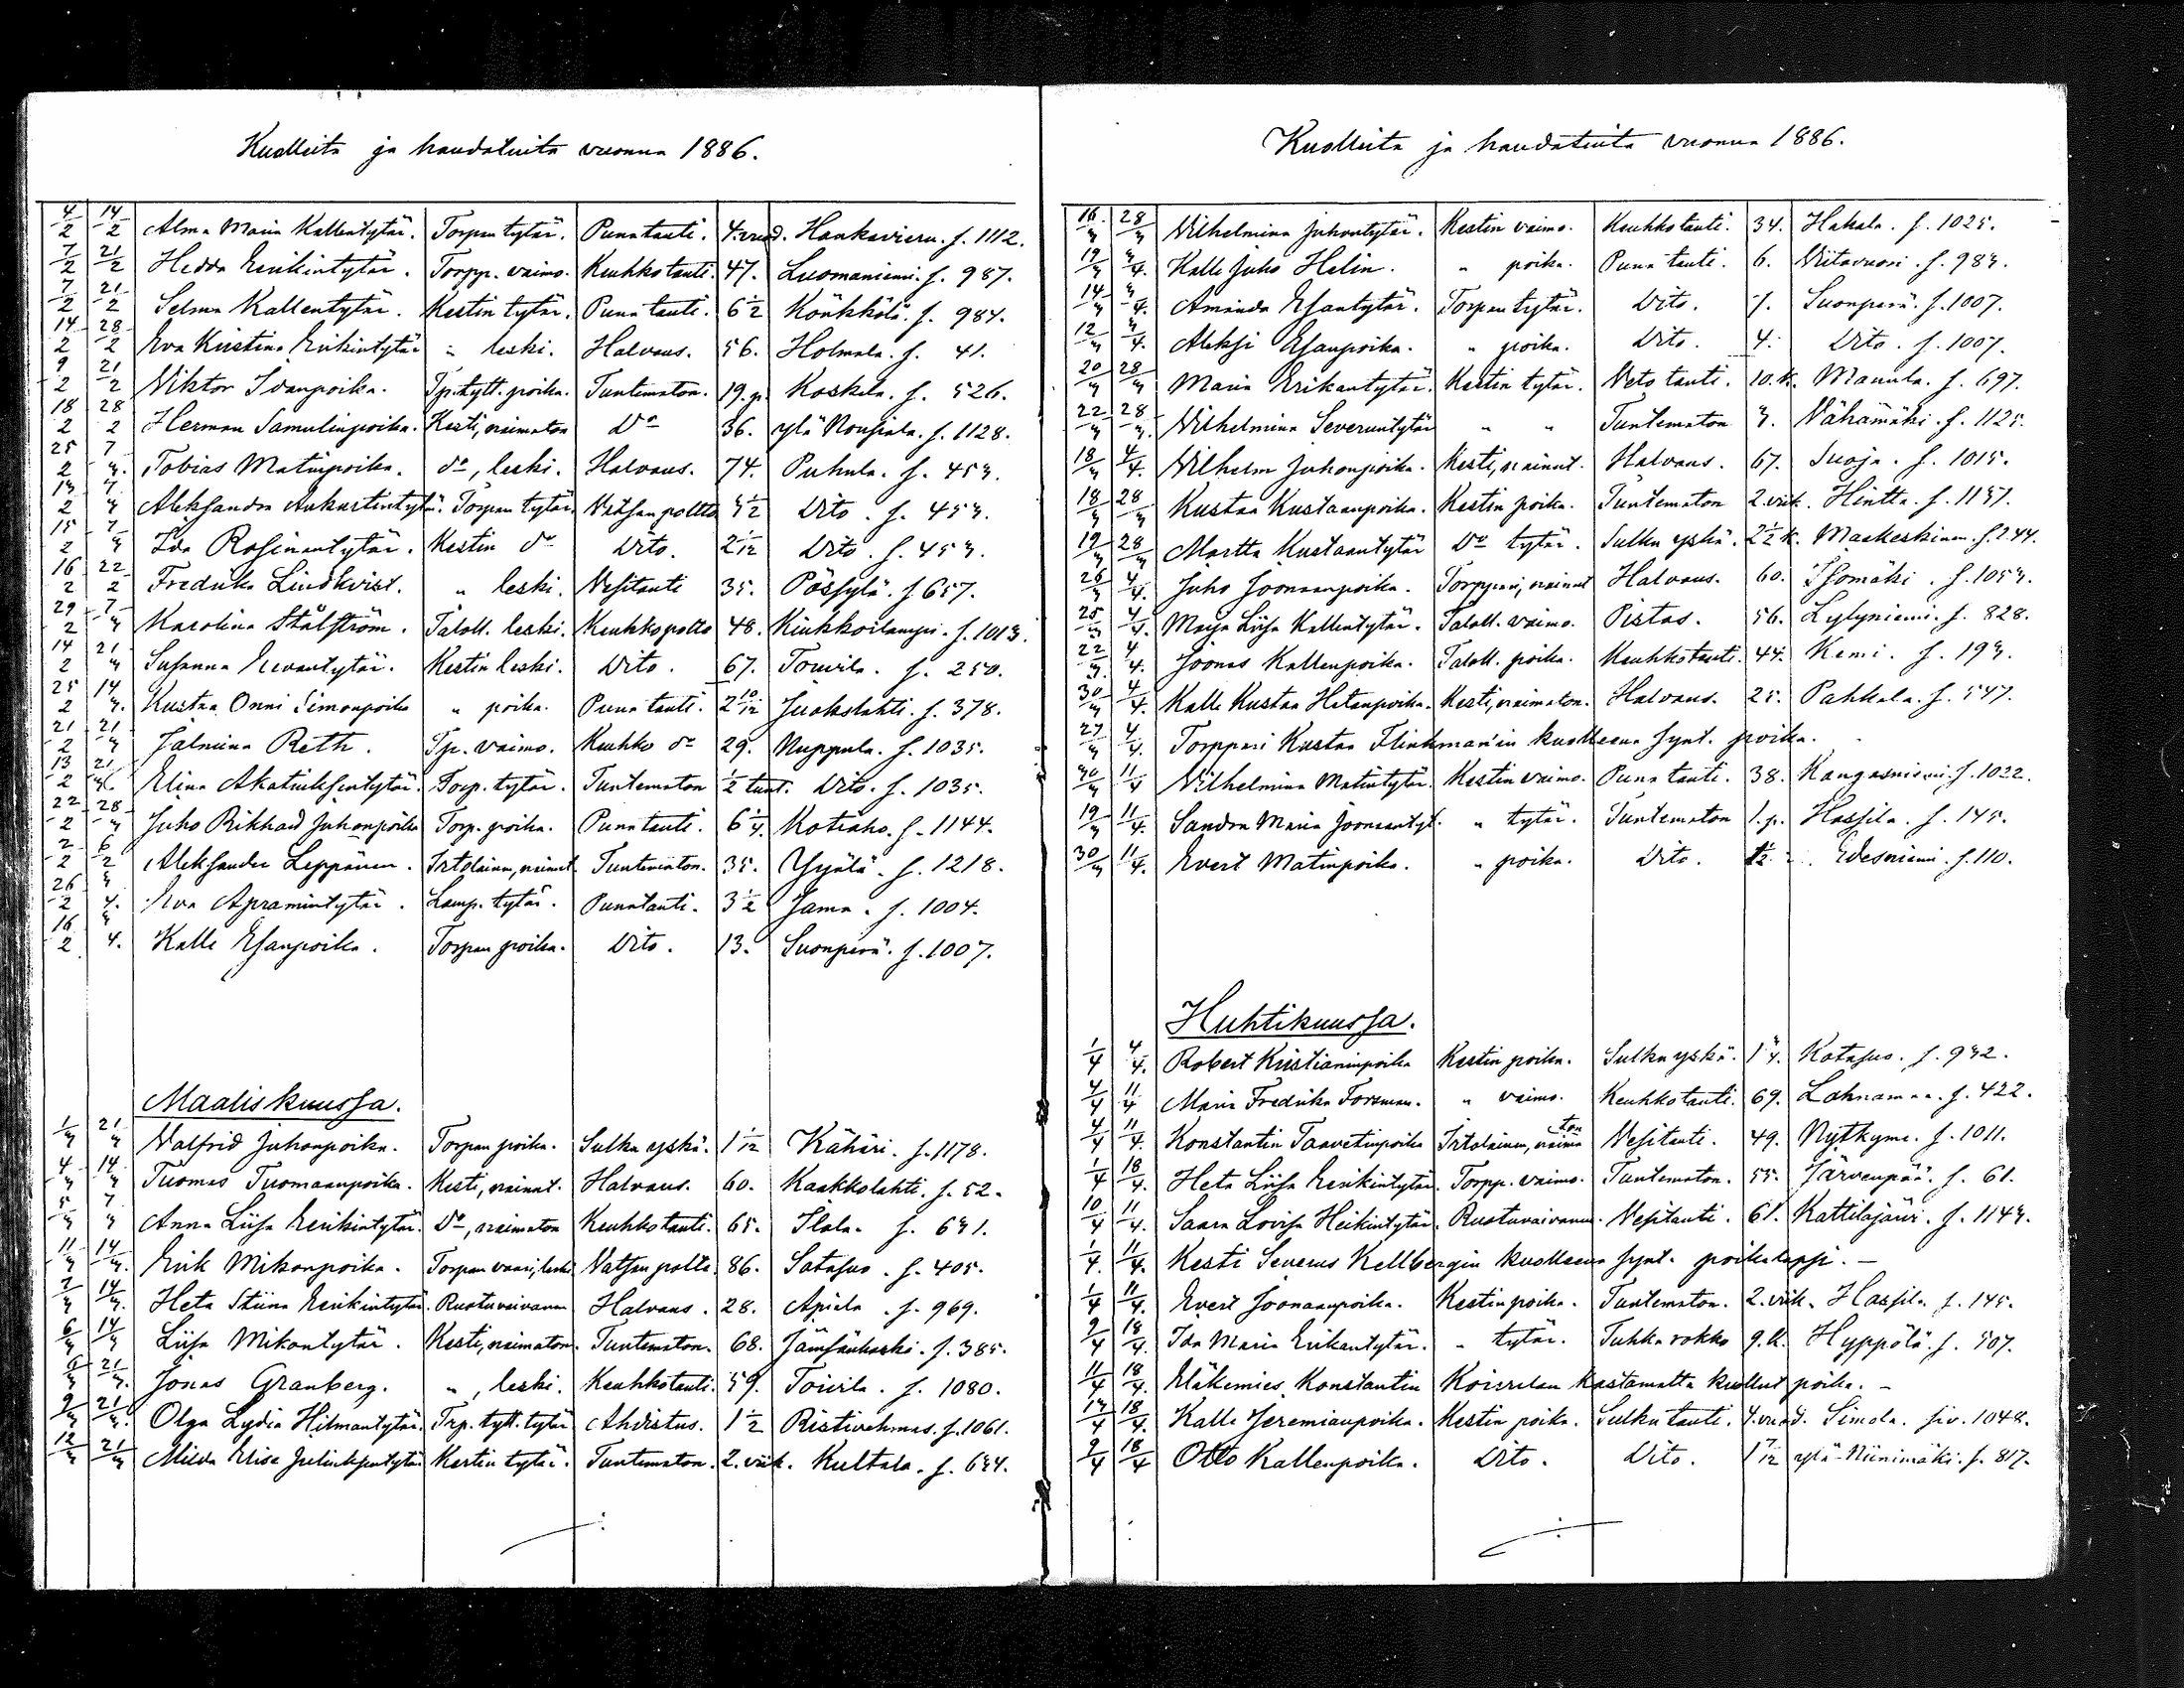 Kuolleita ja haudatuita vuonna 1886.
4/2 14/2 Alma Maria Kallentytär. Torpan tytär. Punatauti. 4. vuod. Hankavieru. f. 1112.
7/2 21/2 Hedda Eerikintytär. Torpp. vaimo. Keuhkotauti. 47. Luomaniemi. f. 987.
7/2 21/2 Selma Kallentytär. Kestin tytär. Punatauti. 6 1/2 Könkkölä. f. 984.
14/2 28/2 Eva Kristina Erikintytär " leski. Halvaus. 56. Holmala. f. 41.
9/2 21/2 Viktor Idanpoika. Tp. tytt. poika. Tuntematon. 19. p. Koskela. f. 526.
18/2 28/2 Herman Samulinpoika. Kesti, naimaton Do 36. ylä Nousiala. f. 1128.
25/2 7/3. Tobias Matinpoika. do, leski. Halvaus. 74. Puhula. f. 453.
13/2 7/3 Aleksandra Aukustintytär. Torpan tytär. Vatsan poltto 3 1/2 Dito. f. 453.
15/2 7/3 Ida Rosinantytär. Kestin do Dito. 2 1/12 Dito. f. 453.
16/2 22/2 Fredrika Lindkvist. " leski. Vesitauti 35. Pössylä. f. 657.
29/2 7/3 Karolina Stålström. Taloll. leski. Keuhkopolto 48. Kiukkoilampi. f. 1013.
14/2 21/3 Susanna Eevantytär. Kestin leski. Dito. 67. Toivila. f. 250.
25/2 14/3. Kustaa Onni Simonpoika " poika. Punatauti. 2 10/12 Juokslahti. f. 378.
21/2 21/3 Jalmina Reth. Tp. vaimo. Keuhko do 29. Nuppula. f. 1035.
13/2 21/3. Elina Akatinksentytär. Torp. tytär. Tuntematon 1/2 tunt. Dito. f. 1035.
22/2 28/3 Juho Rikhard Juhonpoika Torp. poika. Punatauti. 6 1/4. Kotiaho. f. 1144.
2/2 6/2 Aleksander Leppänen. Irtolainen, nainut. Tuntematon. 35. Yijälä. f. 1218.
26/2 3/4. Eva Apramintytär. Lamp. tytär. Punatauti. 3 1/2 Jama. f. 1004.
16/2 4. Kalle Esanpoika. Torpan poika. Dito. 13. Suonperä. f. 1007.
Maaliskuussa.
1/3 21/3 Valfrid Juhonpoika. Torpan poika. Sulku yskä. 1 1/12 Kähäri. f. 1178.
4/3 14/3 Tuomas Tuomaanpoika. Kesti, nainut. Halvaus. 60. Kaakkolahti. f. 52.
5/3 7/3 Anna Liisa Eerikintytär. Do, naimaton Keuhkotauti. 65. Ilola. f. 631.
11/3 14/3. Erik Mikonpoika. Torpan vaari, leski Vatsan poltto. 86. Satasuo. f. 405.
7/3 14/3. Heta Stiina Eerikintytär. Ruotuvaivanen Halvaus. 28. Apiala. f. 969.
6/3 14/3 Liisa Mikontytär. Kesti, naimaton. Tuntematon. 68. Jämsänkoski. f. 385.
6/3 21/3. Jonas Granberg. ", leski. Keuhkotauti. 59. Toivila. f. 1080.
9/3 21/3. Olga Lydia Hilmantytär. Trp. tytt. tytär Ahdistus. 1 1/2 Ristivehmas. f. 1061.
12/3 21/3 Milda Elisa Kestin tytär. Tuntematon. 2. viik. Kultala. f. 634.
Kuolleita ja haudatuita vuonna 1886.
16/3 28/3 Vilhelmina Juhontytär. Kestin vaimo. Keuhkotauti. 34. Hakala. f. 1025.
19/3 4/4. Kalle Juho Helin. " poika. Punatauti. 6. Viitavuori. f. 983.
14/3 4/4. Amanda Esantytär. Torpan tytär. Dito. 7. Suonperä. f. 1007.
12/3 4/4. Aleksi Esanpoika. " poika. Dito. 4. Dito. f. 1007.
20/3 28/3 Maria Erikantytär. Kestin tytär. Veto tauti. 10. k. Mannila. f. 697.
22/3 28/3. Vilhelmina Severuntytär " " Tuntematon 3. Vähämäki. f. 1125.
18/3 4/4. Vilhelm Juhonpoika. Kesti, nainut. Halvaus. 67. Suoja. f. 1015.
18/3 28/3 Kustaa Kustaanpoika. Kestin poika. Tuntematon 2. viik. Hintta. f. 1137.
19/3 28/3 Martta Kustaantytär Do tytär. Sulku yskä. 2 1/2 k. Maakeskinen. f. 244.
26/3 4/4. Juho Joonaanpoika. Torppari, nainut Halvaus. 60. Isomäki. f. 1053.
25/3 4/4. Maija Liisa Kallentytär. Taloll. vaimo. Pistos. 56. Lylyniemi. f. 828.
22/3 4/4. Joonas Kallenpoika. Taloll. poika. Keuhkotauti. 44. Kemi. f. 193.
30/3 4/4. Kalle Kustaa Hetanpoika. Kesti, naimaton. Halvaus. 25. Pahkala. f. 547.
27/3 4/4. Torppari Kustaa Flinkman'in kuolleena synt. poika.
30/3 11/4 Vilhelmina Matintytär. Kestin vaimo. Punatauti. 38. Kangasniemi. f. 1022.
19/3 11/4. Sandra Maria Joonaantyt. " tytär. Tuntematon 1. p. Hassila. f. 145.
30/3 11/4. Evert Matinpoika. " poika. Dito. 1/2. Edesniemi. f. 110.
Huhtikuussa.
1/4 4/4. Robert Kristianinpoika Kestin poika. Sulku yskä. 1 3/4. Kotasuo. f. 932.
4/4 11/4 Maria Fredrika Forsman. " vaimo. Keuhkotauti. 69. Lahnamaa. f. 422.
4/4 11/4. Konstantin Taavetinpoika Irtolainen, naimaton Vesitauti. 49. Nytkyme. f. 1011.
1/4 18/4. Heta Liisa Eerikintytär. Torpp. vaimo. Tuntematon. 55. Järvenpää. f. 61.
10/4 11/4. Saara Lovisa Heikintytär. Ruotuvaivanen. Vesitauti. 61. Kattilajärvi. f. 1143.
1/4. 11/4. Kesti Severus Kellbergin kuolleena synt. poikalapsi. -
1/4 11/4. Evert Joonaanpoika. Kestin poika. Tuntematon. 2. viik. Hassila f. 145.
9/4 18/4. Ida Maria Erikantytär. " tytär. Tuhka rokko 9. k. Hyppölä. f. 507.
11/4 18/4. Eläkemies Konstantin Koivulan kastamatta kuollut poika. -
13/4 18/4. Kalle Jeremianpoika. Kestin poika. Sulku tauti. 4. vuod. Simola. siv. 1048.
9/4 18/4 Otto Kallenpoika. Dito. Dito. 1 7/12 ylä-Niinimäki. f. 817.